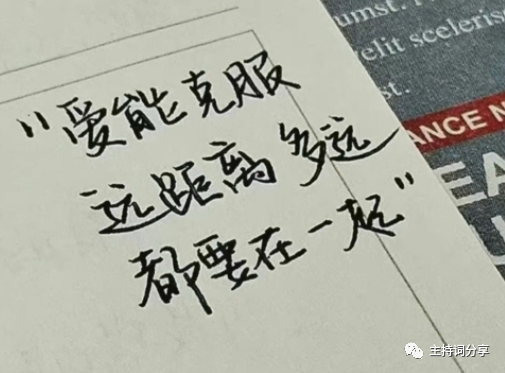 umst.
elit sceleris
st.
ANCE N
EA
U
“爱能克服
远距离多远
都要在一起”
主持词分享